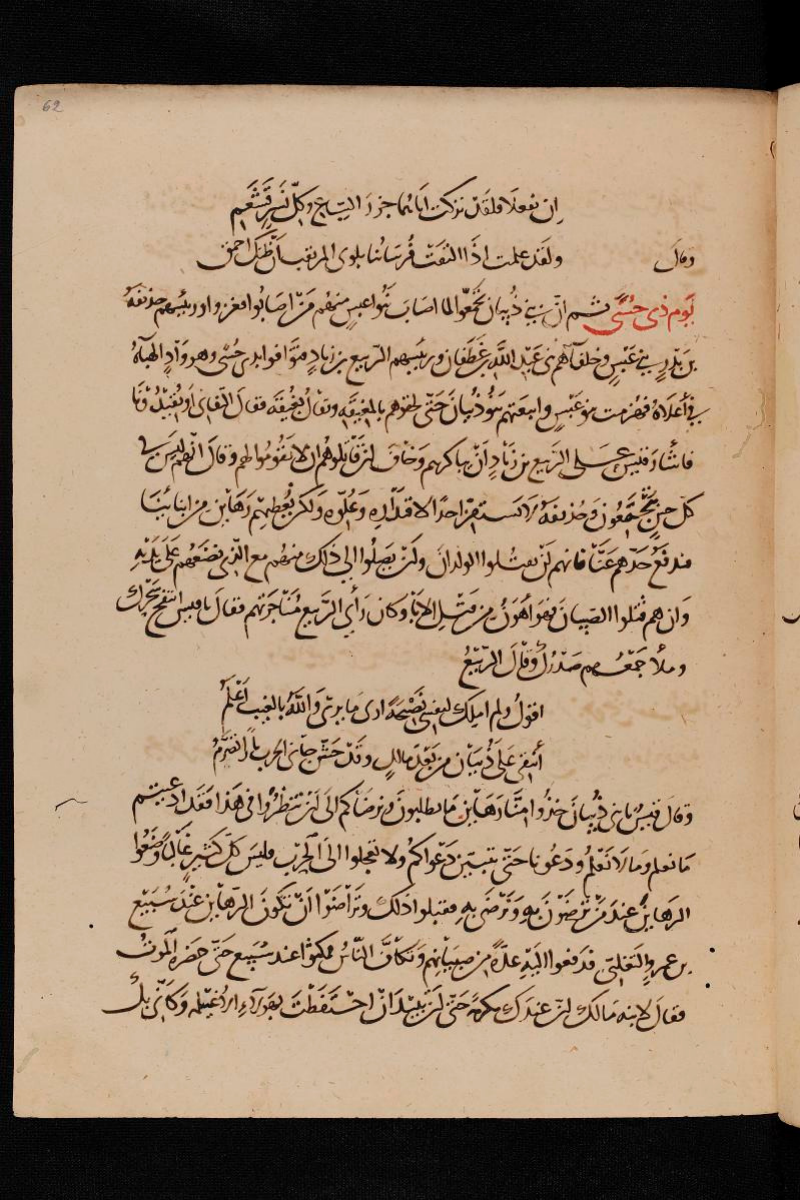 62
ان تفعلا فلقد تركت اباكما جزر السباع وكل نسر قشعم
وقال ولقد علمت اذا التقت فرساننا بلوى المريقب ان ظنك احمق
يوم ذى حسى ثم ان بنى ذبيان تجمعوا لما اصاب بنو عبس منهم من اصابوا فغزوا ورئيسهم حذيفة
بن بدر بنى عبس وخلفآهم بنى عبد الله بن غطفان ورئيسهم الربيع بن زياد فتوافوا بذى حسى وهو وادى الهبآة
فى اعلاه فهزمت بنو عبس واتبعتهم بنو ذبيان حتى لحقوهم بالمغيقة ويقال بغيقة فقال التفانى او تقيدونا
فاشار قيس على الربيع بن زياد ان يماكرهم وخاف ان قاتلوهم ان لا يقوموا لهم وقال انهم ليس فى
كل حين يتجمعون وحذيفة لا يستنفر احدا لاقتداره وعلوه ولكن نعطيهم رهاين من ابنائنا
فندفع حدهم عنا فانهم لن يقتلوا الولدان ولن يصلوا الى ذلك منهم مع الذى نضعهم على يديه
وان هم قتلوا الصبيان فهو اهون من قتل الابآ وكان رأى الربيع مناجزتهم فقال يا قيس انتفخ سحرك
وملأ جمعهم صدرك وقال الربيع
اقول ولم املك لنفسى نصيحة ارى ما يرى والله بالغيب اعلم
أنبقى على ذبيان من بعد مالك وقد حش جانى الحرب نارا تضرم
وقال قيس يا بنى ذبيان خذوا منا رهاين ما تطلبون ونرضاكم الى ان تنظروا فى هذا فقد ادعيتم
ما نعلم وما لا نعلم ودعونا حتى نتبين دعواكم ولا تعجلوا الى الحرب فليس كل كثير غالبا وضعوا
الرهاين عند من ترضون به ونرضى به فقبلوا ذلك وتراضوا ان تكون الرهاين عند سبيع
بن عمرو الثعلبى فدفعوا اليه عدة من صبيانهم وتكاف الناس فمكثوا عند سبيع حتى حضره الموت
فقال لابنه مالك ان عندك مكرمة حتى لن تبيد ان احتفظت بهولاء الاغيلمه وكأنى بك